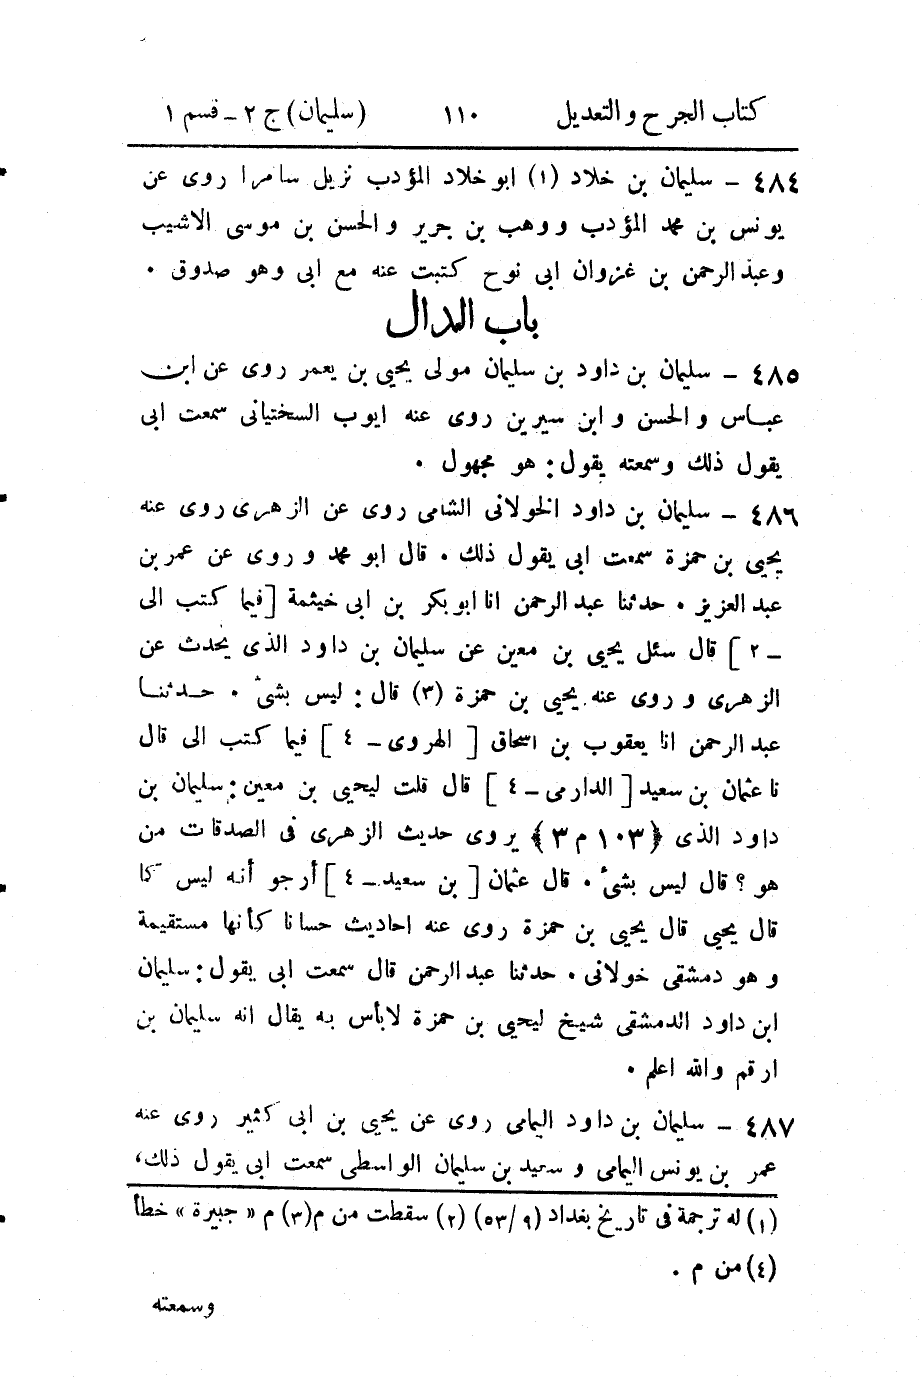 كتاب الجرح والتعديل ١١٠ (سليمان) ج ٢ - قسم ١
٤٨٤ - سليمان بن خلاد (١) ابو خلاد المؤدب نزيل سامرا روى عن
يونس بن محمد المؤدب ووهب بن جرير والحسن بن موسى الاشيب
وعبد الرحمن بن غزوان ابى نوح كتبت عنه مع ابى وهو صدوق .
باب الدال
٤٨٥ - سليمان بن داود بن سليمان مولى يحيى بن يعمر روى عن ابن
عباس والحسن وابن سيرين روى عنه ايوب السختيانى سمعت ابى
يقول ذلك وسمعته يقول : هو مجهول .
٤٨٦ - سليمان بن داود الخولانى الشامى روى عن الزهرى روى عنه
يحيى بن حمزة سمعت ابى يقول ذلك . قال ابو محمد وروى عن عمر بن
عبد العزيز . حدثنا عبد الرحمن انا ابو بكر بن ابى خيثمة [ فيما كتب الى
- ٢ ] قال سئل يحيى بن معين عن سليمان بن داود الذى يحدث عن
الزهرى وروى عنه يحيى بن حمزة (٣) قال : ليس بشئ . حدثنا
عبد الرحمن انا يعقوب بن اسحاق [ الهروى - ٤ ] فيما كتب الى قال
نا عثمان بن سعيد [ الدارمى - ٤ ] قال قلت ليحيى بن معين : سليمان بن
داود الذى {١٠٣ م ٣} يروى حديث الزهرى فى الصدقات من
هو ؟ قال ليس بشئ . قال عثمان [ بن سعيد - ٤ ] أرجو أنه ليس كما
قال يحيى قال يحيى بن حمزة روى عنه احاديث حسانا كأنها مستقيمة
وهو دمشقى خولانى . حدثنا عبد الرحمن قال سمعت ابى يقول : سليمان
ابن داود الدمشقى شيخ ليحيى بن حمزة لا بأس به يقال انه سليمان بن
ارقم والله اعلم .
٤٨٧ - سليمان بن داود اليمامى روى عن يحيى بن ابى كثير روى عنه
عمر بن يونس اليمامى وسعيد بن سليمان الواسطى سمعت ابى يقول ذلك،
(١) له ترجمة فى تاريخ بغداد (٩ / ٥٣) (٢) سقطت من م (٣) م « جبيرة » خطأ
(٤) من م .
وسمعته